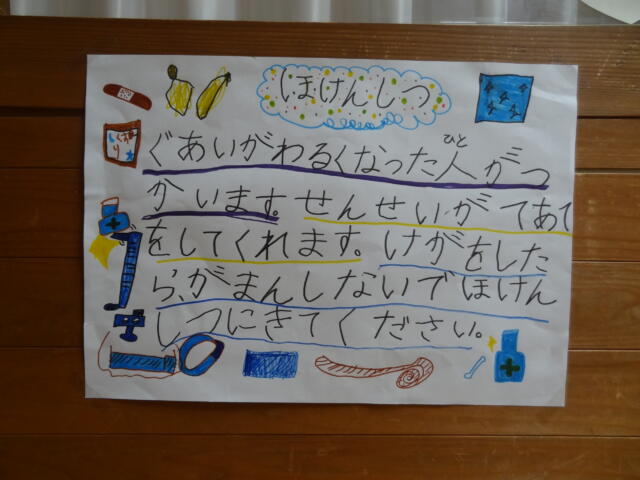 ほけんしつ
ぐあいがわるくなった人がつ
ひと
かいます。せんせいがてあて
をしてくれます。けがをした
ら、がまんしないでほけん
しつにきてください。